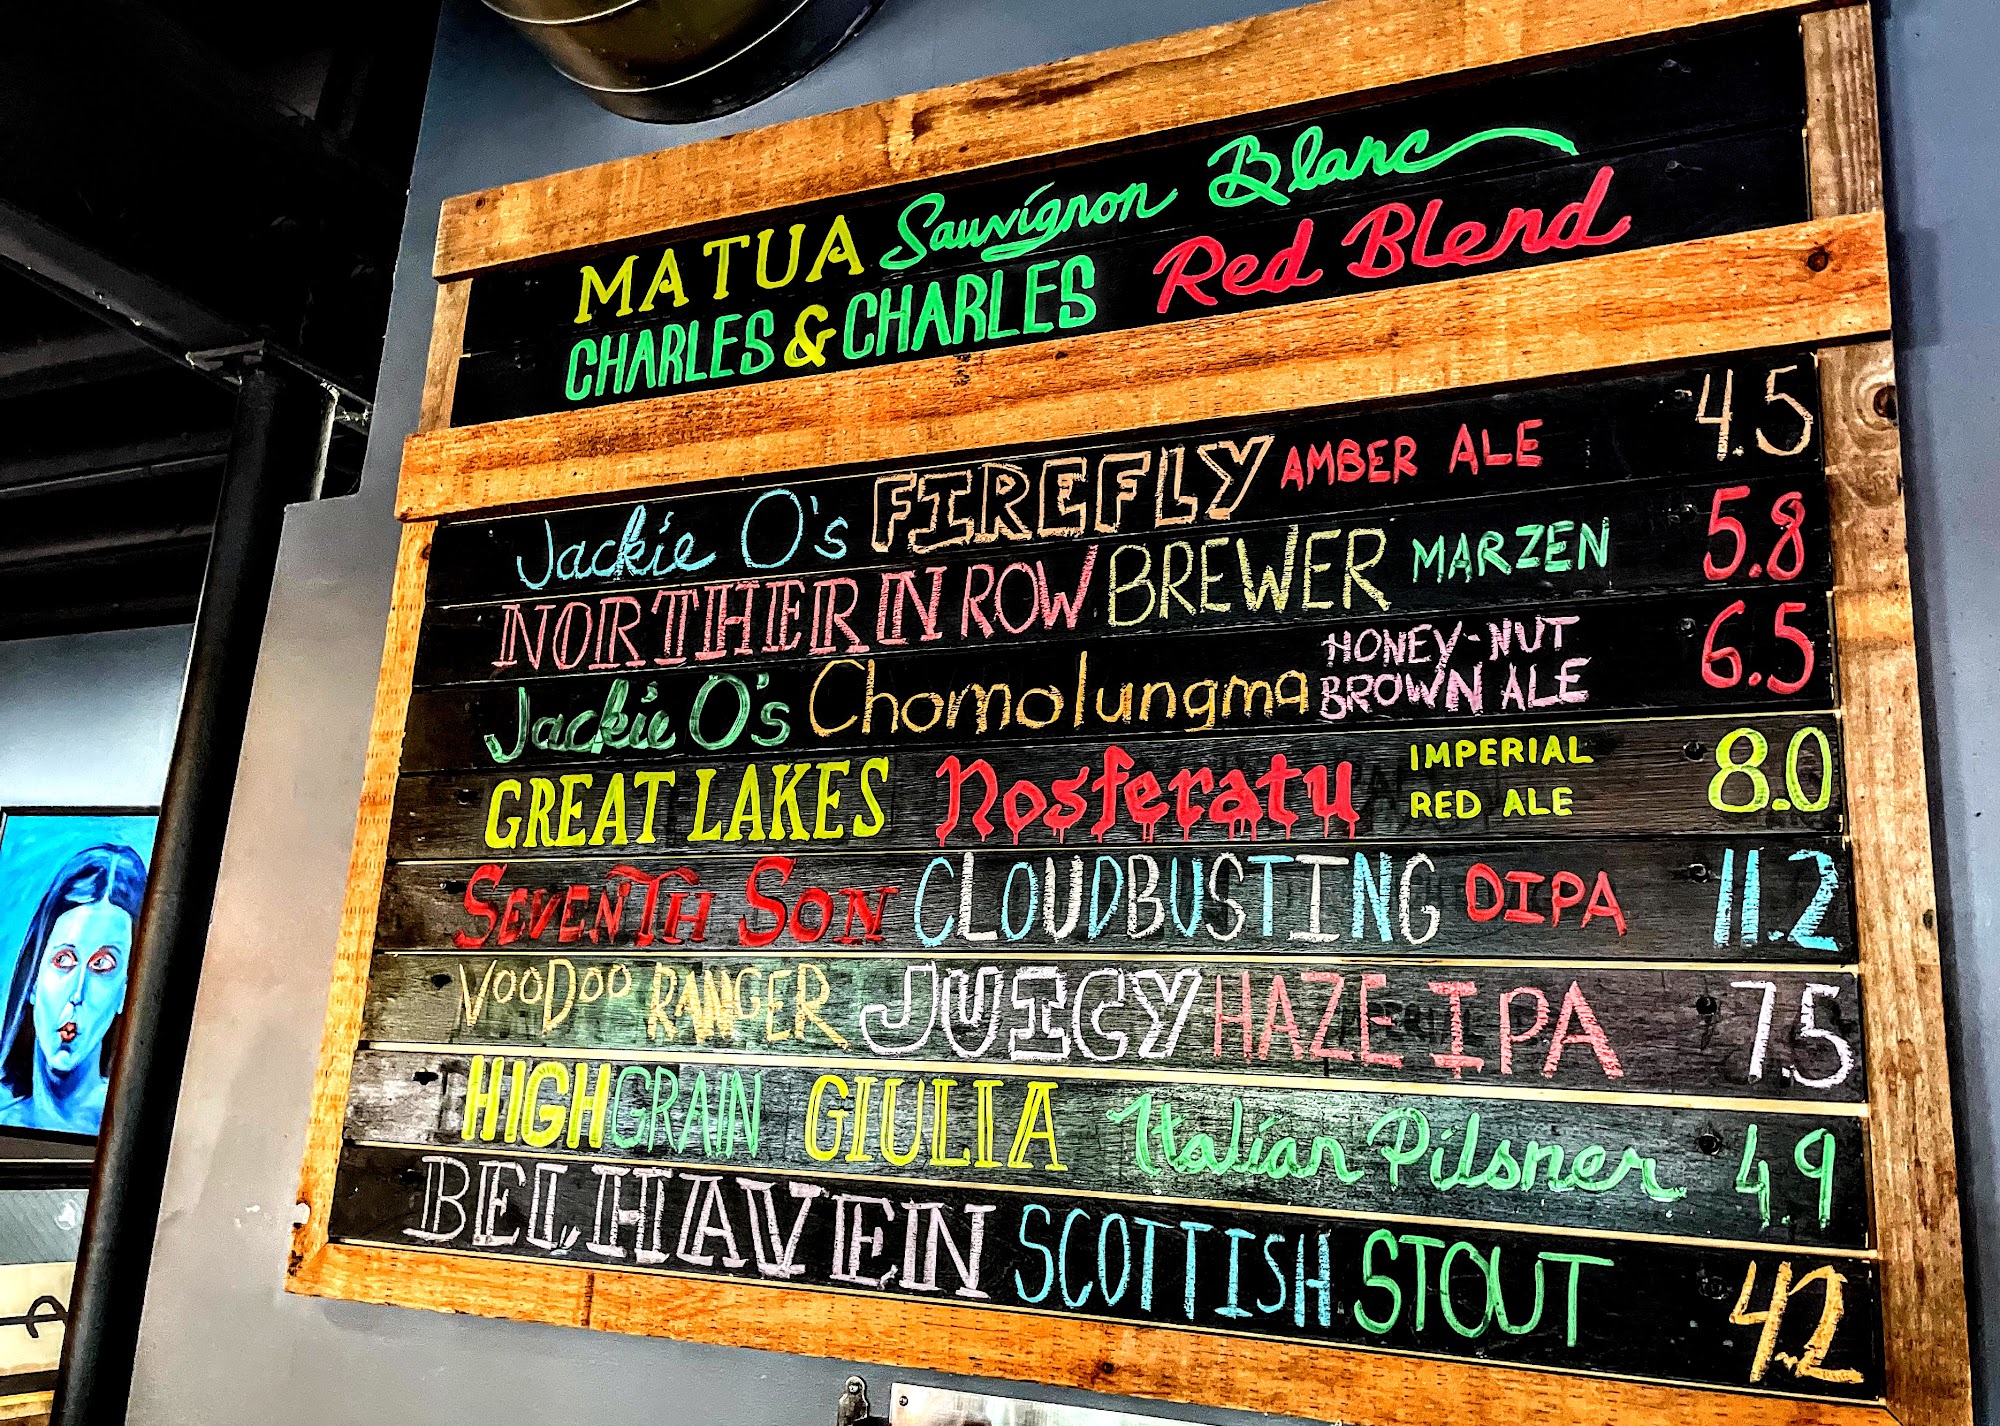 MATUA Sauvignon Blanc
CHARLES & CHARLES Red Blend
Jackie O's FIREFLY AMBER ALE 4.5
NORTHERN ROW BREWER MARZEN 5.8
Jackie O's Chomolungma HONEY-NUT BROWN ALE 6.5
GREAT LAKES Nosferatu IMPERIAL RED ALE 8.0
SEVENTH SON CLOUDBUSTING DIPA 11.2
VOODOO RANGER JUICY HAZE IPA 7.5
HIGHGRAIN GIULIA Italian Pilsner 4.9
BELHAVEN SCOTTISH STOUT 4.2